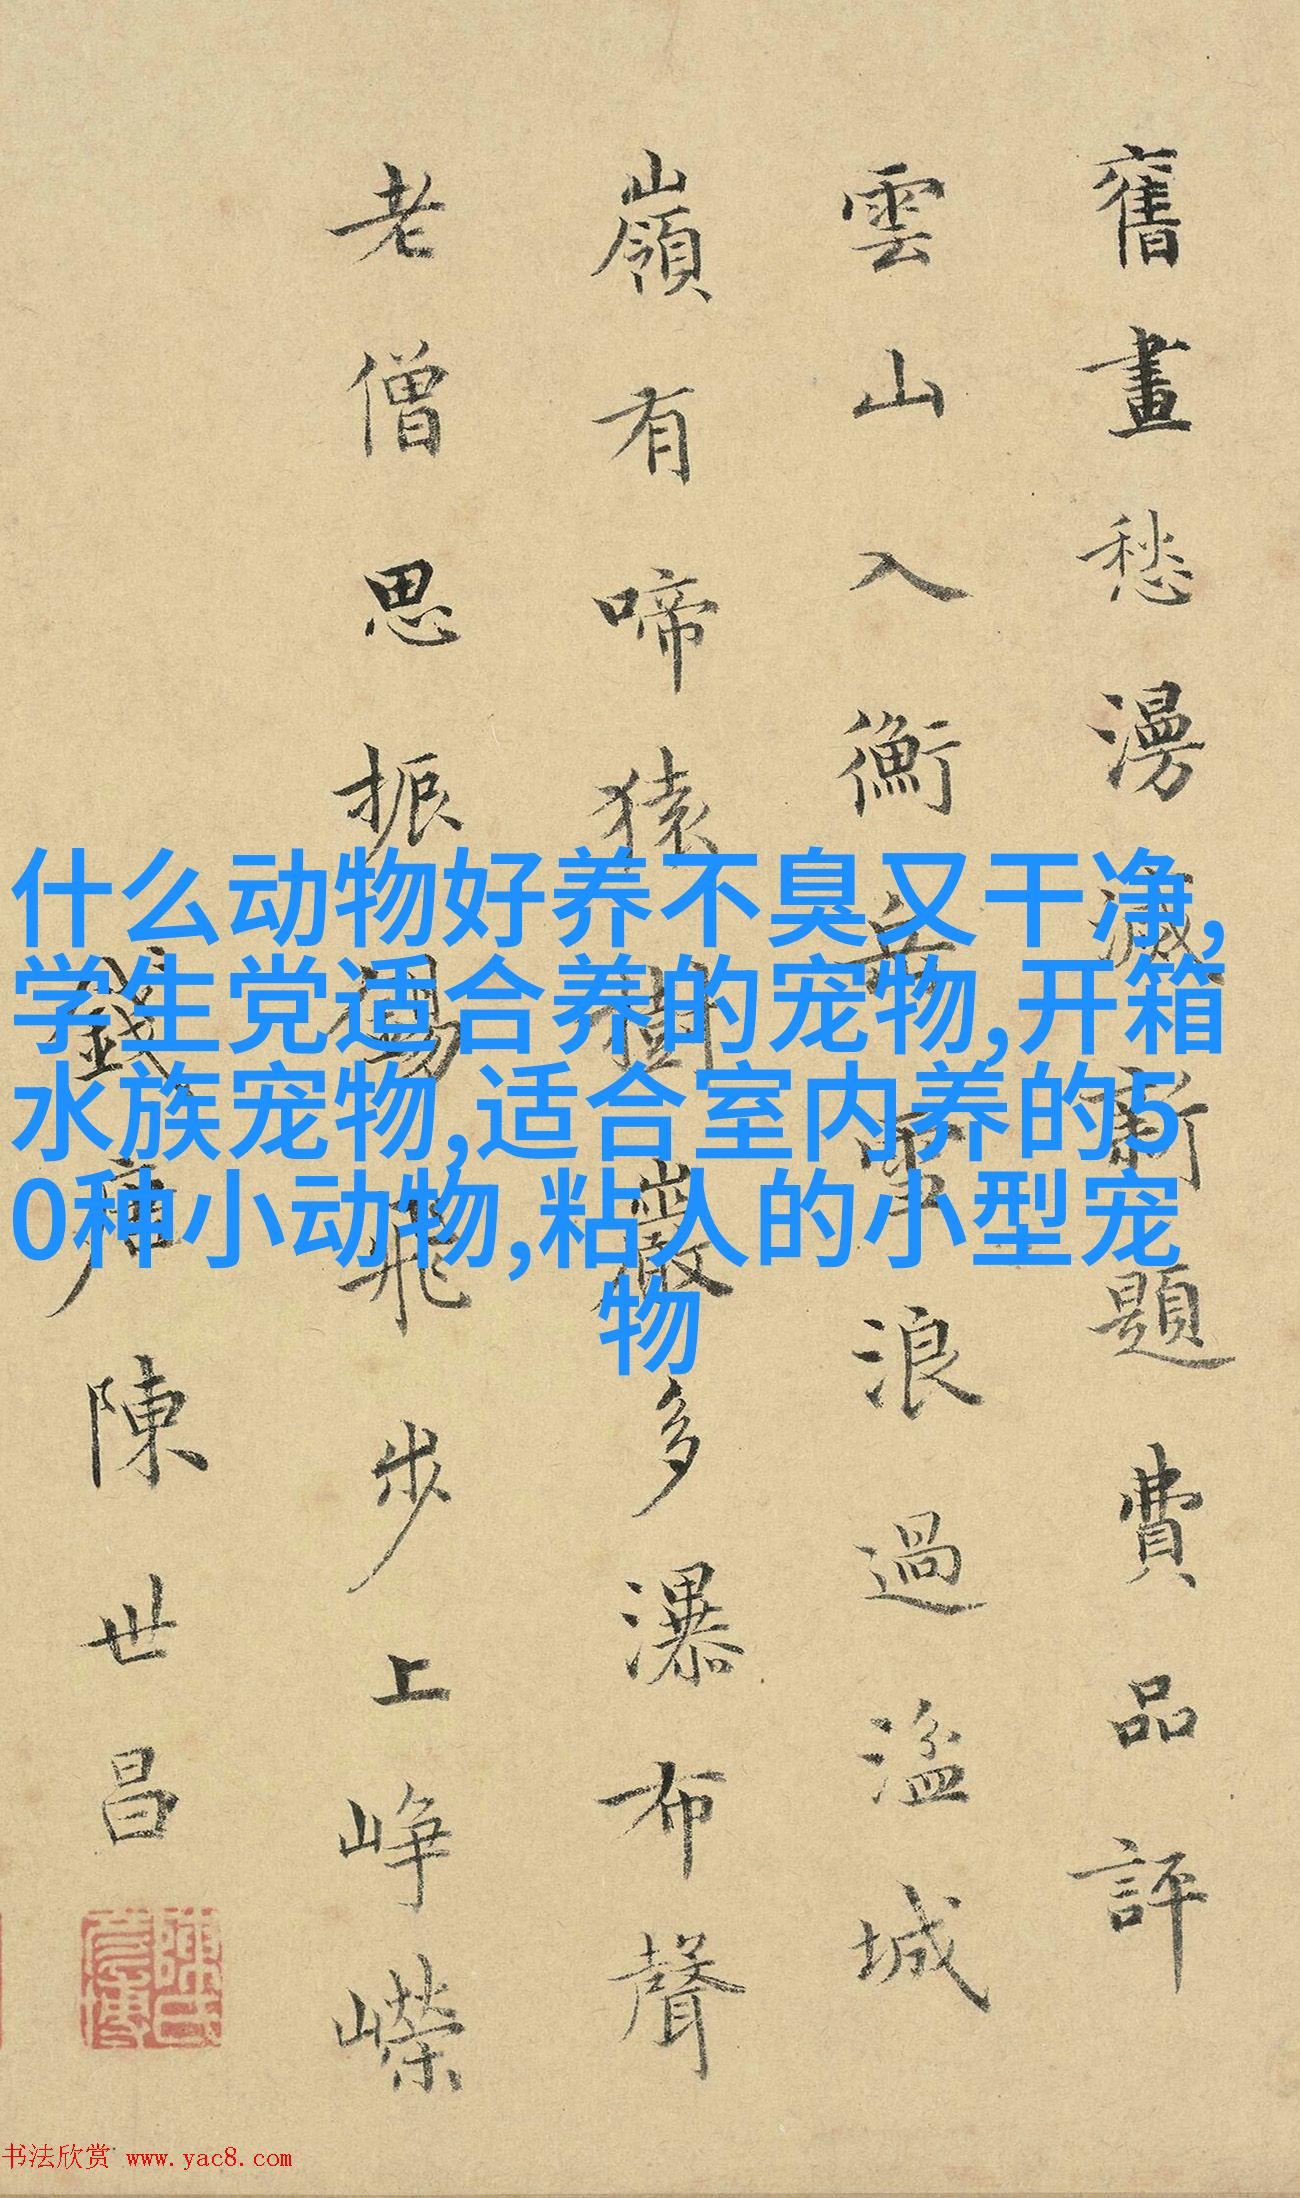 舊畫愁漫滅新題費品評
雲山入衡岳雪浪過溢城
嶺有啼猿樹巖多瀑布聲
老僧思振錫飛步上崢嶸
錢唐陳世昌
什么动物好养不臭又干净,
学生党适合养的宠物,开箱
水族宠物,适合室内养的5
0种小动物,粘人的小型宠
物
书法欣赏 www.yac8.com